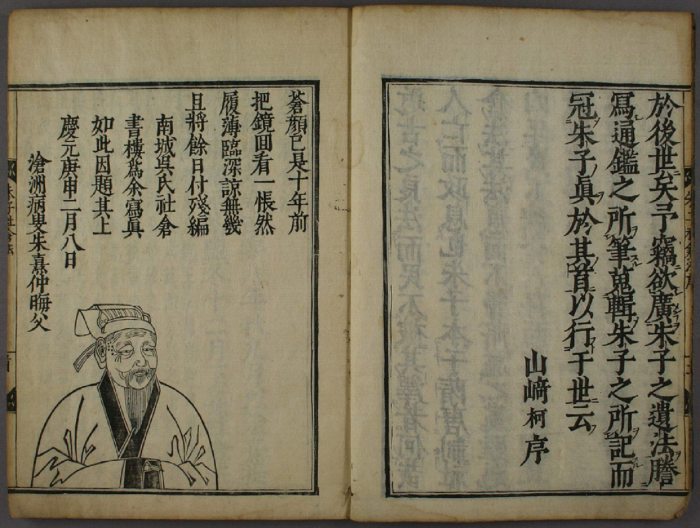 於後世矣予竊欲廣朱子之遺法謄
寫通鑑之所筆蒐輯朱子之所記而
冠朱子眞於其首以行于世云
山﨑柯序
蒼顔已是十年前
把鏡囬看一悵然
履薄臨深諒無幾
且將餘日付殘編
南城吳氏社倉
書樓爲余寫眞
如此因題其上
慶元庚申二月八日
滄洲病叟朱熹仲晦父
朱子社倉法